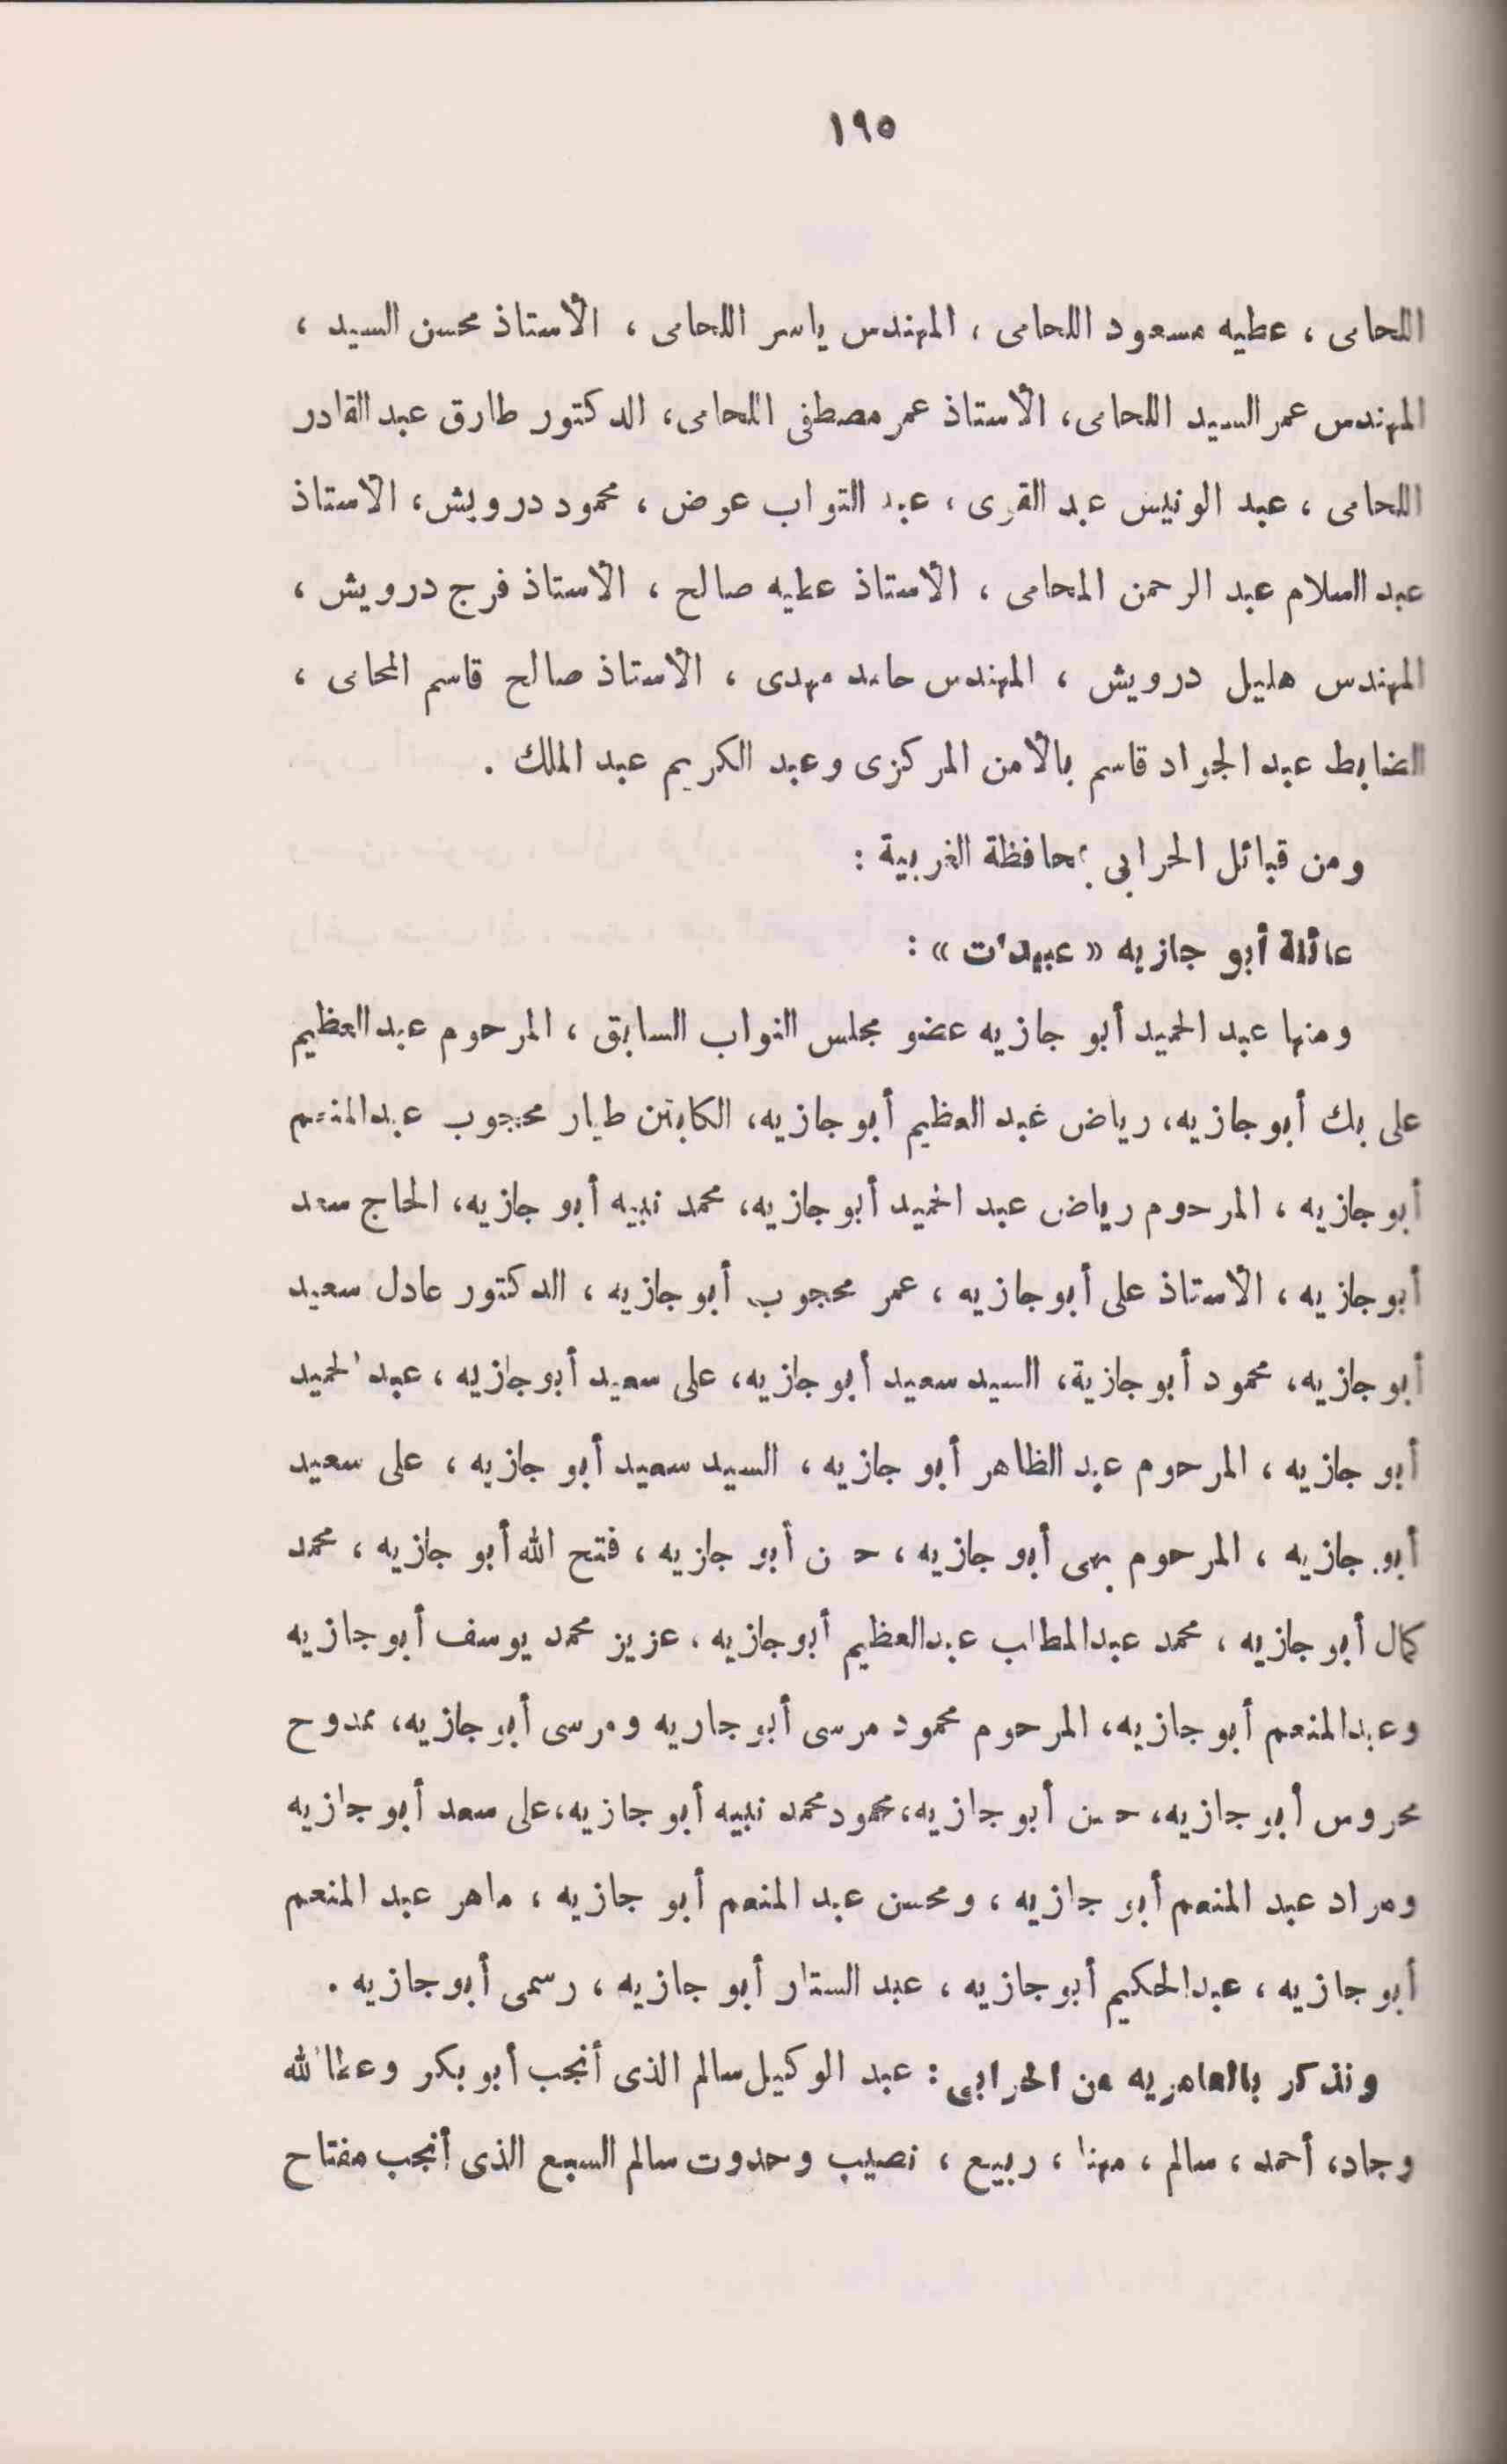 ١٩٥
اللحامى ، عطيه مسعود اللحامى ، المهندس ياسر اللحامى ، الأستاذ محسن السيد ،
المهندس عمر السيد اللحامى، الأستاذ عمر مصطفى اللحامى، الدكتور طارق عبد القادر
اللحامى ، عبد الونيس عبد القوى ، عبد التواب عوض ، محمود درويش، الأستاذ
عبد السلام عبد الرحمن المحامى ، الأستاذ عطيه صالح ، الأستاذ فرج درويش ،
المهندس هليل درويش ، المهندس حامد مهدى ، الأستاذ صالح قاسم المحامى ،
الضابط عبد الجواد قاسم بالأمن المركزى وعبد الكريم عبد الملك .
ومن قبائل الحرابى بمحافظة الغربية :
عائلة أبو جازيه « عبيدات » :
ومنها عبد الحميد أبو جازيه عضو مجلس النواب السابق ، المرحوم عبد العظيم
على بك أبو جازيه، رياض غبد العظيم أبو جازيه، الكابتن طيار محجوب عبدالمنعم
أبو جازيه ، المرحوم رياض عبد الحميد أبو جازيه، محمد نبيه أبو جازيه، الحاج سعد
أبو جازيه ، الأستاذ على أبو جازيه ، عمر محجوب أبو جازيه ، الدكتور عادل سعيد
أبو جازيه، محمود أبو جازية، السيد سعيد أبو جازيه، على سعيد أبو جازيه ، عبد الحميد
أبو جازيه ، المرحوم عبد الظاهر أبو جازيه ، السيد سعيد أبو جازيه ، على سعيد
أبو جازيه ، المرحوم بهى أبو جازيه ، حسن أبو جازيه ، فتح الله أبو جازيه ، محمد
كمال أبو جازيه ، محمد عبدالمطلب عبدالعظيم أبو جازيه ، عزيز محمد يوسف أبو جازيه
وعبدالمنعم أبو جازيه، المرحوم محمود مرسى أبو جاريه ومرسى أبو جازيه، ممدوح
محروس أبو جازيه، حسن أبو جازيه، محمود محمد نبيه أبو جازيه، على سعد أبو جازيه
ومراد عبد المنعم أبو جازيه ، ومحسن عبد المنعم أبو جازيه ، ماهر عبد المنعم
أبو جازيه ، عبدالحكيم أبو جازيه ، عبد الستار أبو جازيه ، رسمى أبو جازيه .
ونذكر بالعامريه من الحرابى : عبد الوكيل سالم الذى أنجب أبو بكر وعطا الله
وجاد، أحمد ، سالم ، مهنا ، ربيع ، نصيب وحدوت سالم السبع الذى أنجب مفتاح